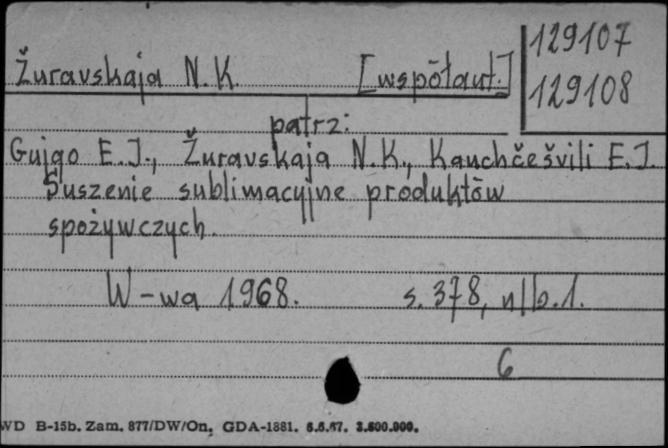 129107
Žuravskaja N.K. [współaut.]
129108
patrz:
Gujgo E.J., Žuravskaja N.K., Kauchčešvili E.J.
Suszenie sublimacyjne produktów
spożywczych.
W-wa 1968. s. 378, nlb.1.
6
WD B-15b. Zam. 877/DW/On, GDA-1881. 6.6.67. 3.600.000.